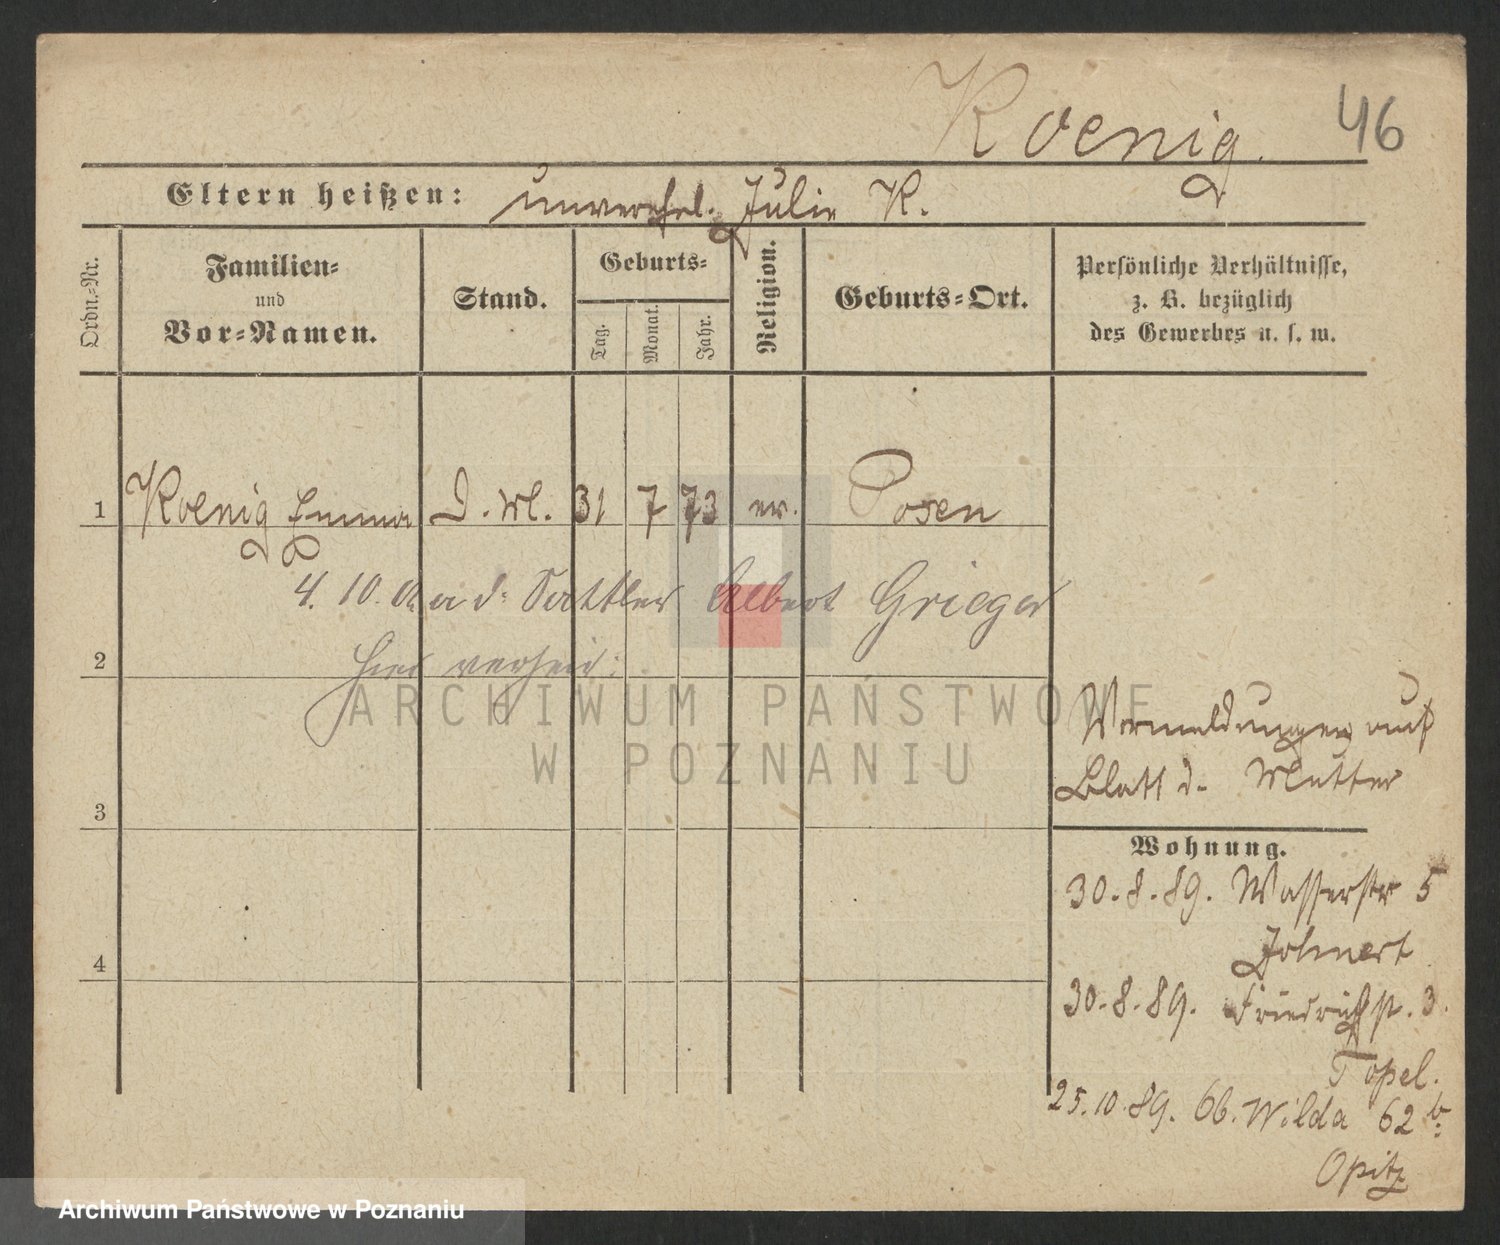 Koenig.
46
Eltern heißen: unverehel. Julie K.
Ordn.-Nr.
Familien-
und
Vor-Namen.
Stand.
Geburts-
Tag.
Monat.
Jahr.
Religion.
Geburts-Ort.
Persönliche Verhältnisse,
z. B. bezüglich
des Gewerbes u. s. w.
1 Koenig Emma D. Wl. 31 7 73 ev. Posen
4. 10. a d. Sattler Albert Grieger
hier verheir:
2
3
4
Vermeldungen auf
Blatt d. Mutter
Wohnung.
30.8.89. Wasserstr 5
30.8.89. Friedrichst. 3.
Topel.
25.10.89. Ob. Wilda 62 b.
Opitz
ARCHIWUM PAŃSTWOWE
W POZNANIU
Archiwum Państwowe w Poznaniu